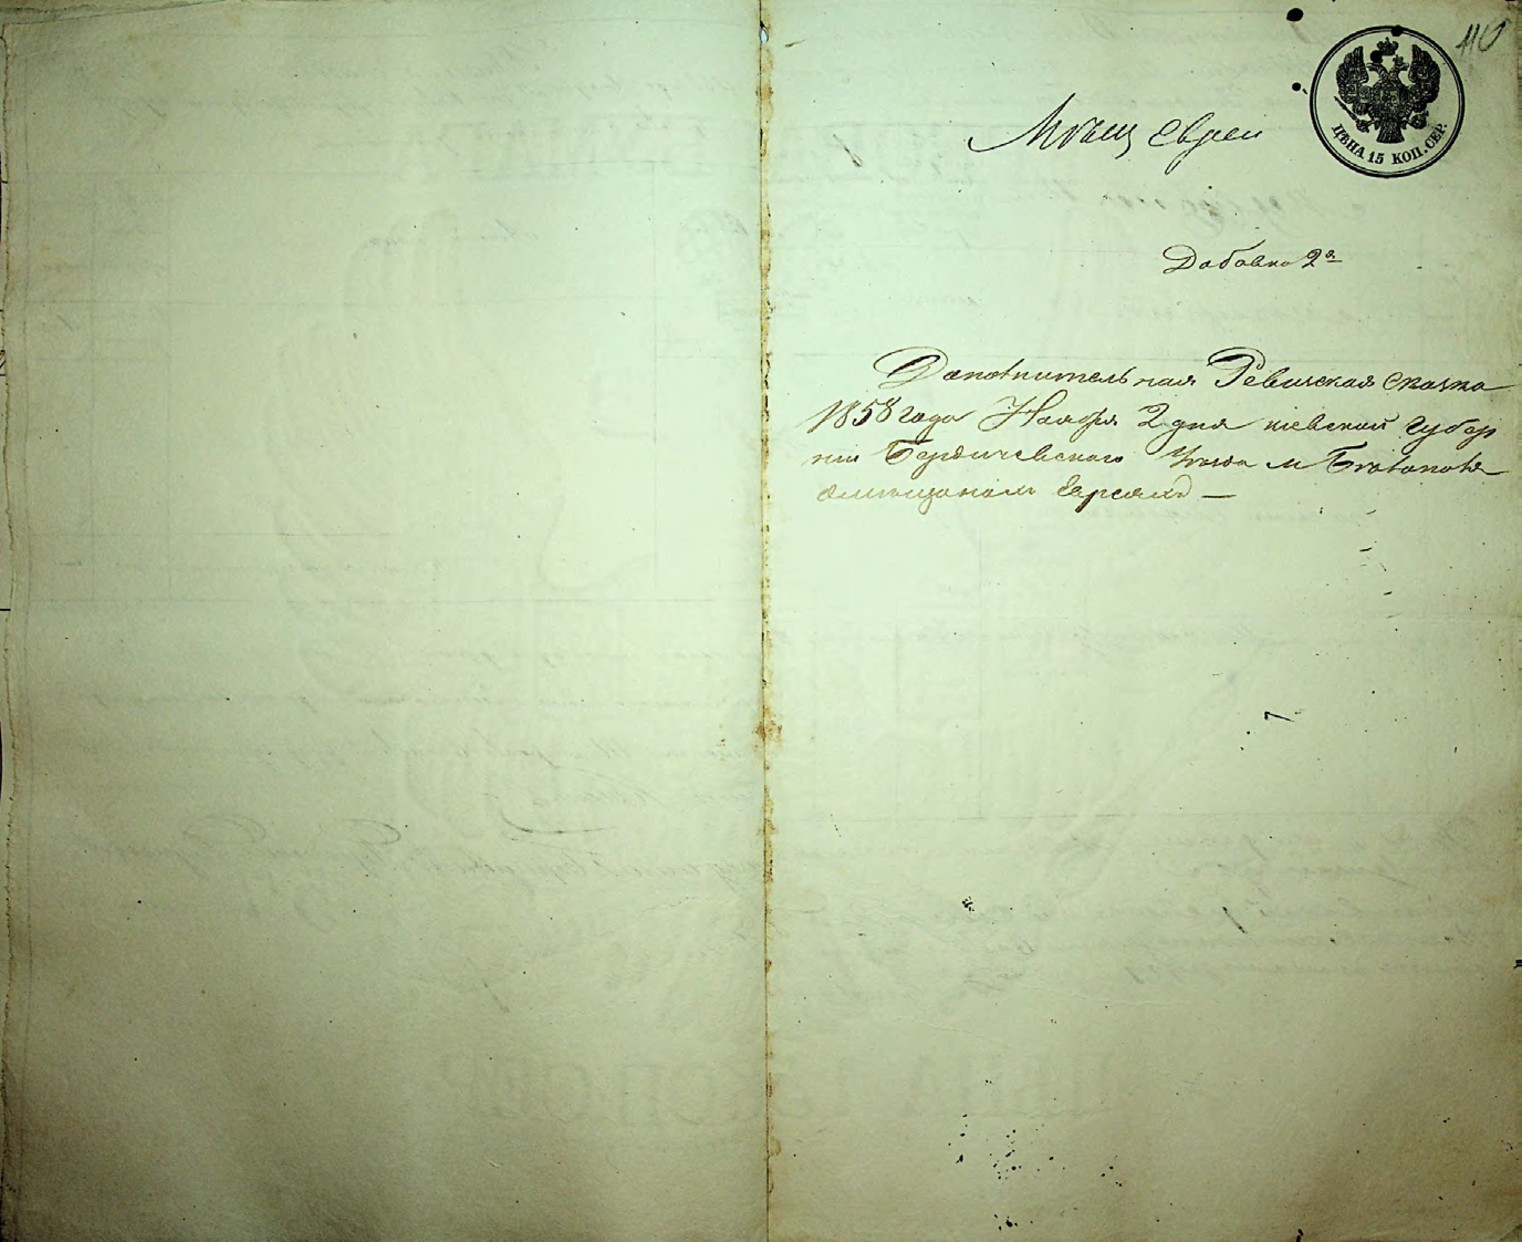 110
ЦѢНА 15 КОП. СЕР.
Мѣщ евреи
Добавка 2я
Дополнительная Ревизская сказка
1858 года Ноября 2 дня киевской губер
нии Бердичевского Уезда м Бѣлополя
омѣщанахъ Евреяхъ —